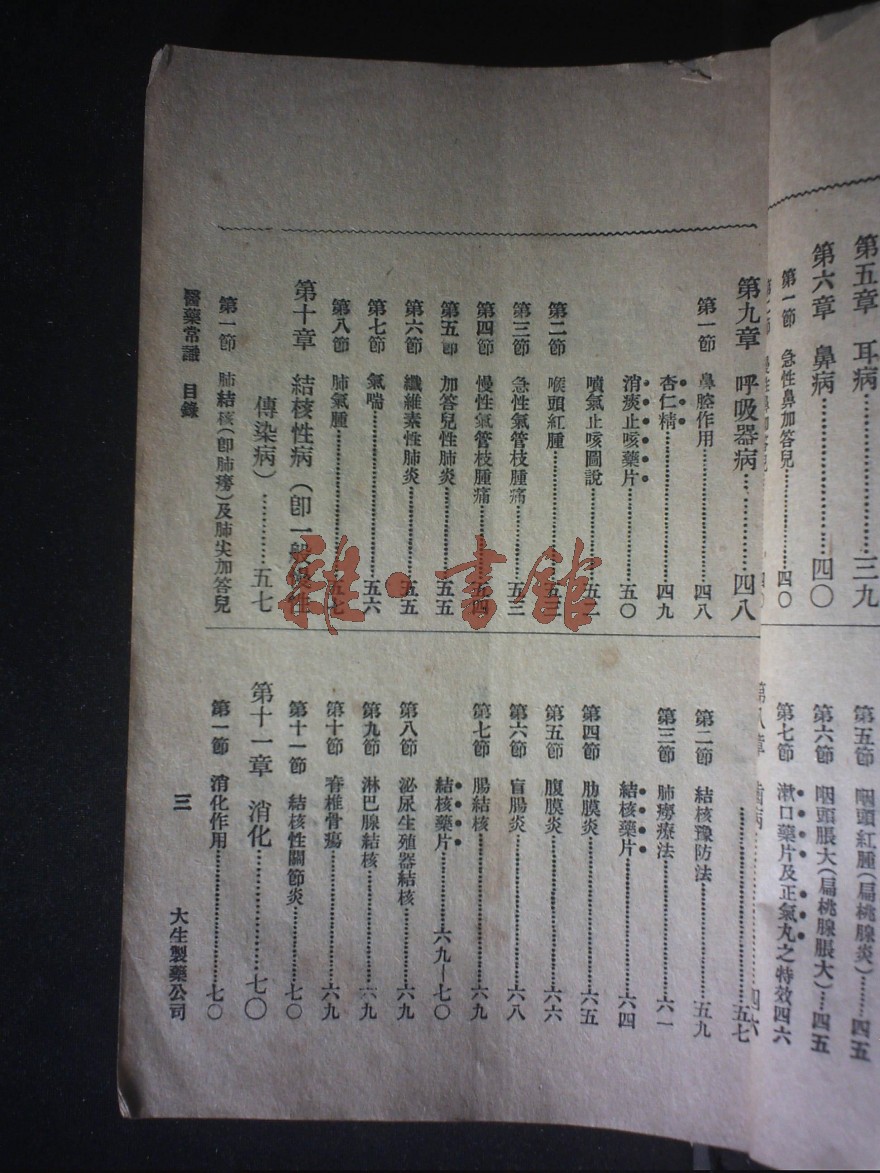 第五章　耳病……………三九
第六章　鼻病……………四〇
第一節　急性鼻加答兒……………四〇
第五節　咽頭紅腫（扁桃腺炎）……四五
第六節　咽頭脹大（扁桃腺脹大）…四五
第七節　漱口藥片及正氣丸之特效四六
第八章　齒病……………四六
第九章　呼吸器病……………四八
第一節　鼻腔作用……………四八
杏仁精……………四九
消痰止咳藥片……………五〇
噴氣止咳圖說……………五二
第二節　喉頭紅腫……………五三
第三節　急性氣管枝腫痛……………五三
第四節　慢性氣管枝腫痛……………五四
第五節　加答兒性肺炎……………五五
第六節　纖維素性肺炎……………五五
第七節　氣喘……………五六
第八節　肺氣腫……………五七
第十章　結核性病（卽一般慢性
傳染病）……………五七
第一節　肺結核（卽肺癆）及肺尖加答兒
……………五七
第二節　結核豫防法……………五九
第三節　肺癆療法……………六一
結核藥片……………六四
第四節　肋膜炎……………六五
第五節　腹膜炎……………六六
第六節　盲腸炎……………六八
第七節　腸結核……………六九
結核藥片……………六九—七〇
第八節　泌尿生殖器結核……………六九
第九節　淋巴腺結核……………六九
第十節　脊椎骨瘍……………六九
第十一節　結核性關節炎……………七〇
第十一章　消化……………七〇
第一節　消化作用……………七〇
醫藥常識　目錄
三
大生製藥公司
雜·書館